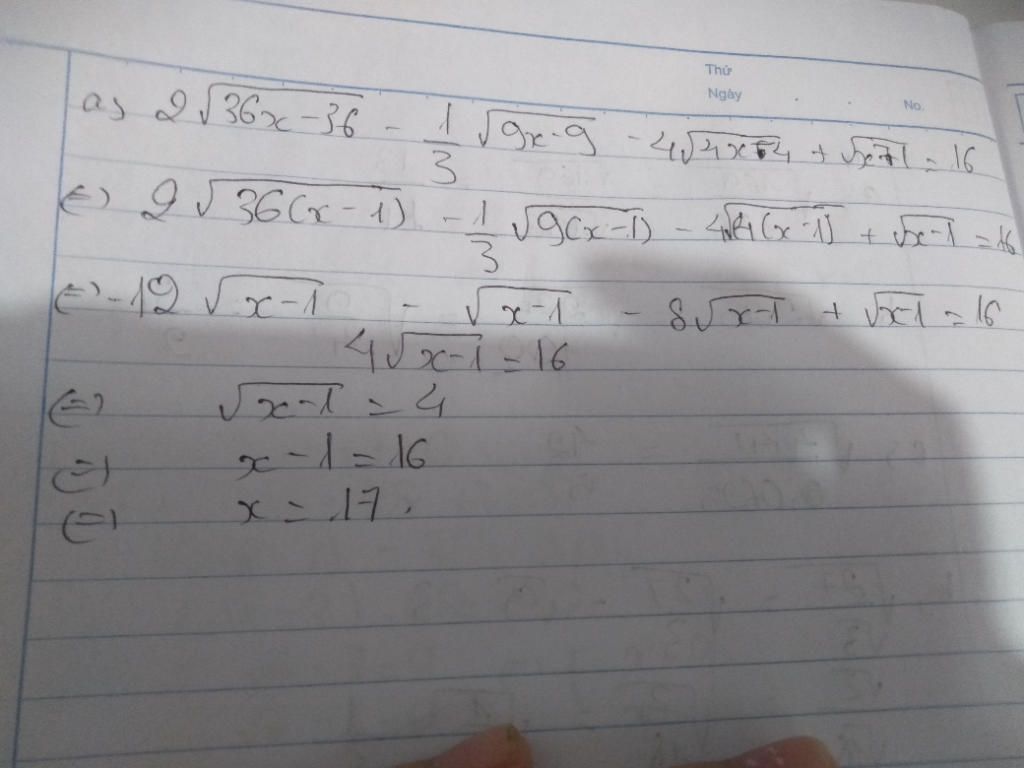 Thứ
Ngày
No.
a) 2√(36x-36) - 1/3 √(9x-9) - 4√(4x-4) + √(x-1) = 16
(=) 2√(36(x-1)) - 1/3 √(9(x-1)) - 4√(4(x-1)) + √(x-1) = 16
(=) -12√(x-1) - √(x-1) - 8√(x-1) + √(x-1) = 16
4√(x-1) = 16
(=) √(x-1) = 4
(=) x-1 = 16
(=) x = 17.